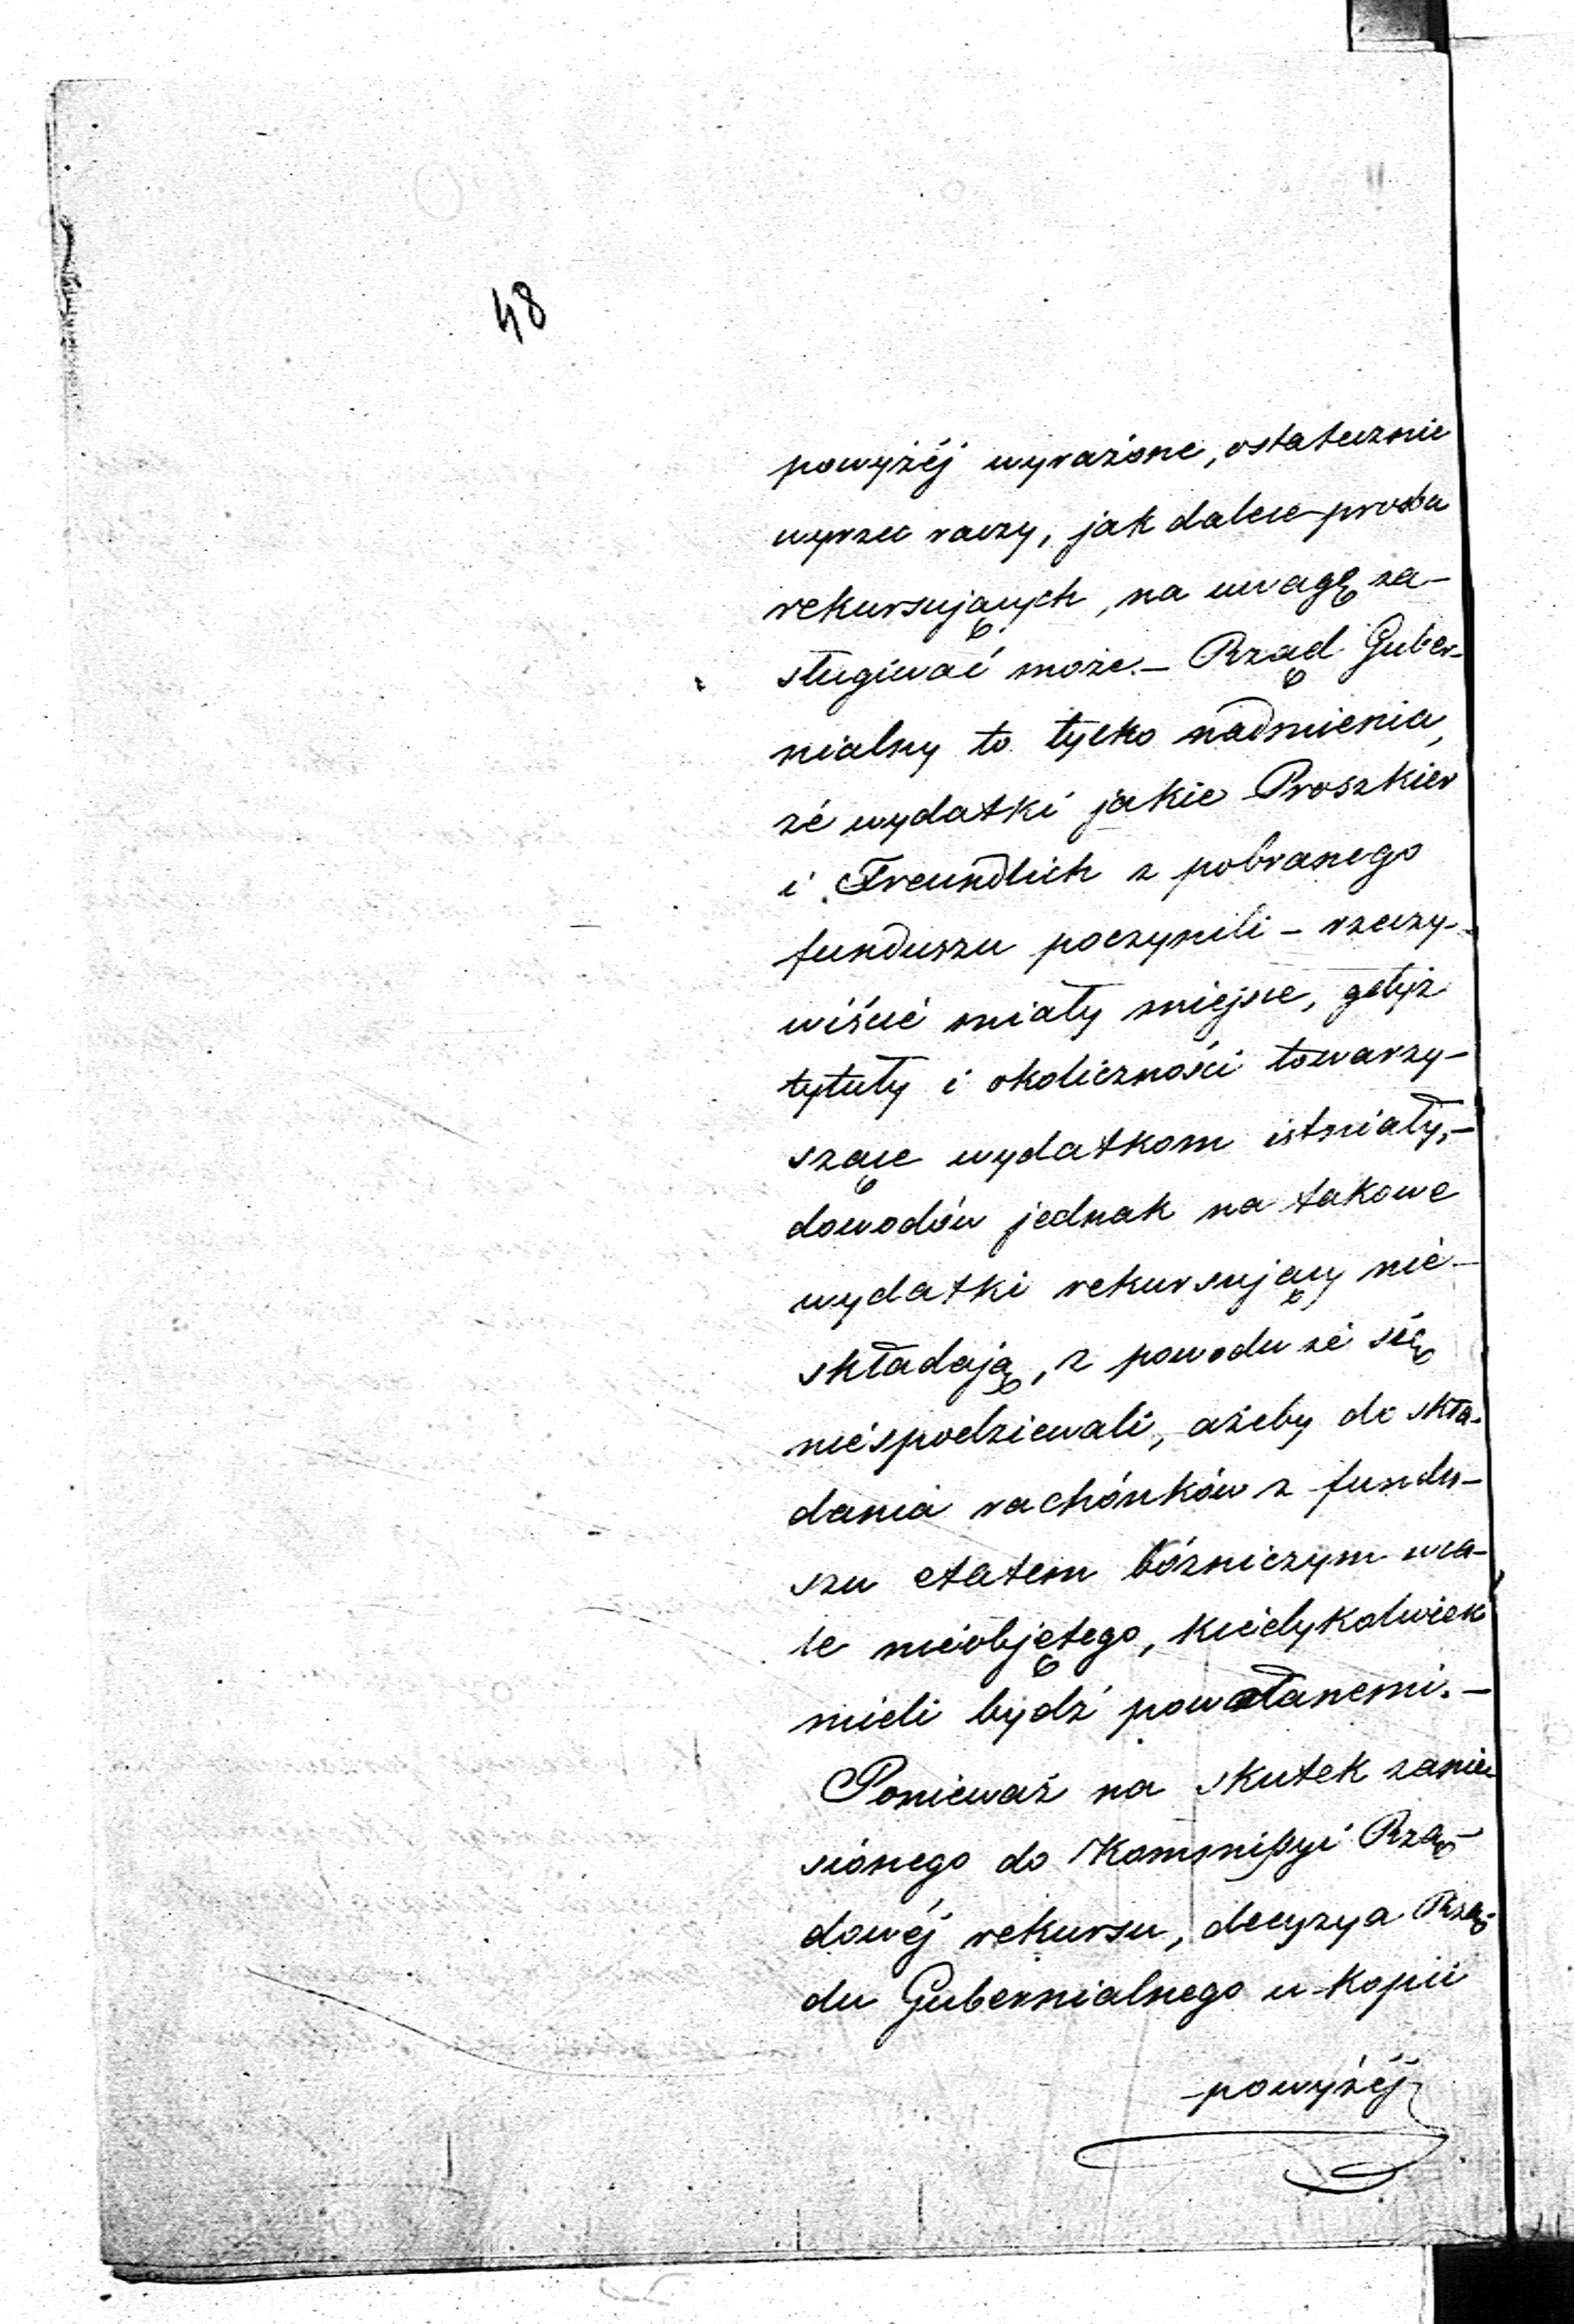 48
powyżéj wyrażone, ostatecznie
wyrzec raczy, jak dalece prośba
rekursujących, na uwagę za-
sługiwać może. — Rząd Guber-
nialny to tylko nadmienia,
że wydatki jakie Proszkier
i Freundlich z pobranego
funduszu poczynili – rzeczy-
wiście miały miejsce, gdyż
tytuły i okoliczności towarzy-
szące wydatkom istniały, –
dowodów jednak na takowe
wydatki rekursujący nie
składają, z powodu że się
niespodziewali, ażeby do skła-
dania rachónków z fundu-
szu etatem bóżniczym wca-
le nieobjętego, kiedykolwiek
mieli bydź powołanemi. —
Ponieważ na skutek zanie-
sionego do Kommissyi Rzą-
dowéj rekursu, decyzya Rzą-
du Gubernialnego w kopii
powyżéj